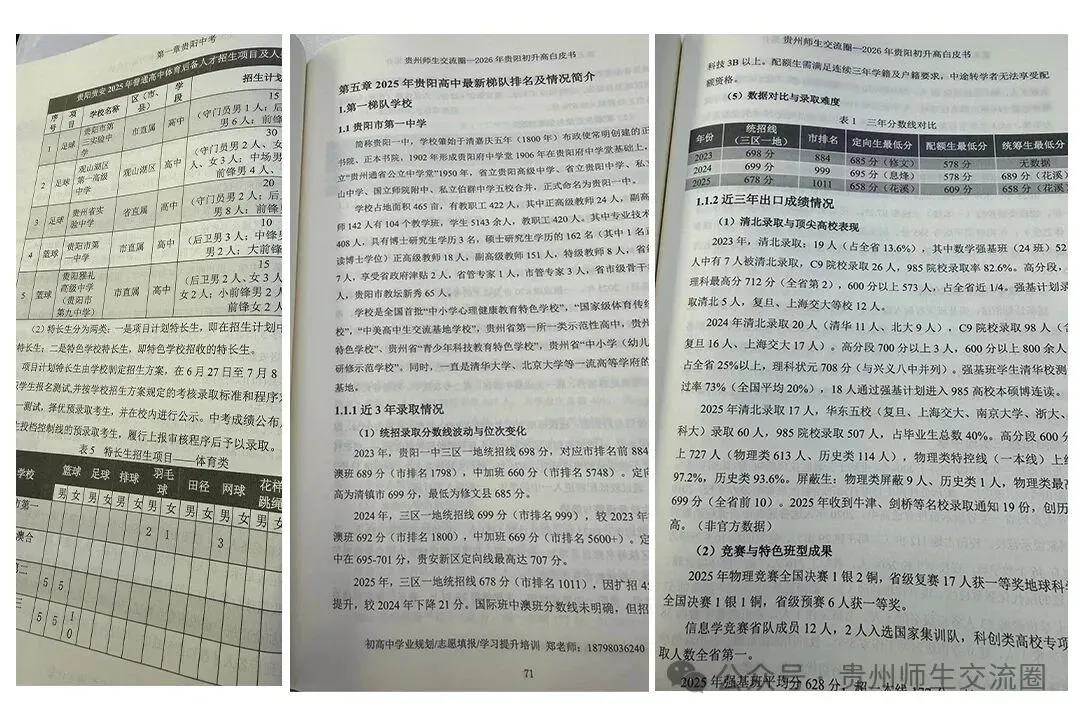 第一章贵阳中考
贵阳贵安 2025 年普通高中体育后备人才招生项目及人
序号 项目 学校名称 区（市、县） 学段 招生计划
1 足球 贵阳市第三实验中学 市直属 高中 15
（守门员男 1 人；后
男 6 人；前锋
2 足球 观山湖区第一高级中学 观山湖区 高中 30
（守门员男 2 人、女
人、女 3 人；中场男
前锋男 4 人、
3 足球 贵州省实验中学 省直属 高中 20
（守门员男 2 人；后
男 8 人；前锋
4 篮球 贵阳市第一中学 市直属 高中 10
（后卫男 3 人；中锋
男 2 人；大前锋
5 篮球 贵阳雅礼高级中学（贵阳市第九中学） 市直属 高中 15
（后卫男 2 人、女 3 人
女 2 人；小前锋男 2
前锋女 2 人
（2）特长生分为两类：一是项目计划特长生，即在招生计划中
特长生；二是特色学校特长生，即特色学校招收的特长生。
项目计划特长生由学校制定招生方案，在 6 月 27 日至 7 月 8
学生报名测试，并按学校招生方案规定的考核录取标准和程序
一测试，择优预录取考生，并在校内进行公示。中考成绩公布
投档控制线的预录取考生，履行上报审核程序后予以录取。
表 5 特长生招生项目——体育类
学校 篮球 足球 排球 羽毛球 田径 网球 花样跳绳
男 女 男 女 男 女 男 女 男 女 男 女 男
市第一
2 1 3
澳合
第二 5 5
三 5 5 1 10
贵州师生交流圈—2026 年贵阳初升高白皮书
第五章 2025 年贵阳高中最新梯队排名及情况简介
1.第一梯队学校
1.1 贵阳市第一中学
简称贵阳一中，学校肇始于清嘉庆五年（1800 年）布政使常明创建的正
书院、正本书院，1902 年形成贵阳府中学堂 1906 年在贵阳府中学堂基础上，
立“贵州通省公立中学堂”1950 年，省立贵阳高级中学、省立贵阳中学、私立
山中学、国立师院附中、私立伯群中学五校合并，正式命名为贵阳一中。
学校占地面积 465 亩，有教职工 422 人，其中正高级教师 24 人，副高
师 142 人有 104 个教学班，学生 5143 余人，教职工 420 人。其中专业技术
408 人，具有博士研究生学历 3 名，硕士研究生学历的 162 名（其中 1 名正
读博士学位）正高级教师 18 人，副高级教师 151 人，特级教师 8 人，省级
7 人，享受省政府津贴 2 人，省管专家 1 人，市管专家 3 人，省市级骨干
人，贵阳市教坛新秀 65 人。
学校是全国首批“中小学心理健康教育特色学校”，“国家级体育传统
校”，“中美高中生交流基地学校”，贵州省第一所一类示范性高中，贵州
特色学校”、贵州省“青少年科技教育特色学校”，贵州省“中小学（幼儿
研修示范学校”。同时，一直是清华大学、北京大学等一流高等学府的
基地。
1.1.1 近 3 年录取情况
（1）统招录取分数线波动与位次变化
2023 年，贵阳一中三区一地统招线 698 分，对应市排名前 884
澳班 689 分（市排名 1798），中加班 660 分（市排名 5748）。定向
高为清镇市 699 分，最低为修文县 685 分。
2024 年，三区一地统招线 699 分（市排名 999），较 2023 年
澳班 692 分（市排名 1800），中加班 669 分（市排名 5600+）。定
中在 695-701 分，贵安新区定向线最高达 707 分。
2025 年，三区一地统招线 678 分（市排名 1011），因扩招 4
提升，较 2024 年下降 21 分。国际班中澳班分数线未明确，但招
初高中学业规划/志愿填报/学习提升培训 郑老师：18798036240
71
贵州师生交流圈—2026 年贵阳初升高白皮书
科技 3B 以上。配额生需满足连续三年学籍及户籍要求，中途转学者无法享受配
额资格。
（5）数据对比与录取难度
表 1 三年分数线对比
年份 统招线（三区一地） 市排名 定向生最低分 配额生最低分 统筹生最低分
2023 698 分 884 685 分（修文） 578 分 无数据
2024 699 分 999 695 分（息烽） 578 分 689 分（花溪）
2025 678 分 1011 658 分（花溪） 609 分 658 分（花溪）
1.1.2 近三年出口成绩情况
（1）清北录取与顶尖高校表现
2023 年，清北录取：19 人（占全省 13.6%），其中数学强基班（24 班）52
人中有 7 人被清北录取，C9 院校录取 26 人，985 院校录取率 82.6%。高分段，
理科最高分 712 分（全省第 2），600 分以上 573 人，占全省近 1/4。强基计划录
取清北 5 人，复旦、上海交大等校 12 人。
2024 年清北录取 20 人（清华 11 人、北大 9 人），C9 院校录取 98 人（含
复旦 16 人、上海交大 17 人）。高分段 700 分以上 3 人，600 分以上 800 余人
占全省 25%以上，理科状元 708 分（与兴义八中并列）。强基班学生清华校测
过率 73%（全国平均 20%），18 人通过强基计划进入 985 高校本硕博连读。
2025 年清北录取 17 人，华东五校（复旦、上海交大、南京大学、浙大、
科大）录取 60 人，985 院校录取 507 人，占毕业生总数 40%。高分段 600 分
上 727 人（物理类 613 人、历史类 114 人），物理类特控线（一本线）上线
97.2%，历史类 93.6%。屏蔽生：物理类屏蔽 9 人、历史类 1 人，物理类最高
699 分（全省前 10）。2025 年收到牛津、剑桥等名校录取通知 19 份，创历
高。（非官方数据）
（2）竞赛与特色班型成果
2025 年物理竞赛全国决赛 1 银 2 铜，省级复赛 17 人获一等奖地球科学
全国决赛 1 银 1 铜，省级预赛 6 人获一等奖。
信息学竞赛省队成员 12 人，2 人入选国家集训队，科创类高校专项
取人数全省第一。
2025 年强基班平均分 628 分，超一本线 177 分
公众号 · 贵州师生交流圈